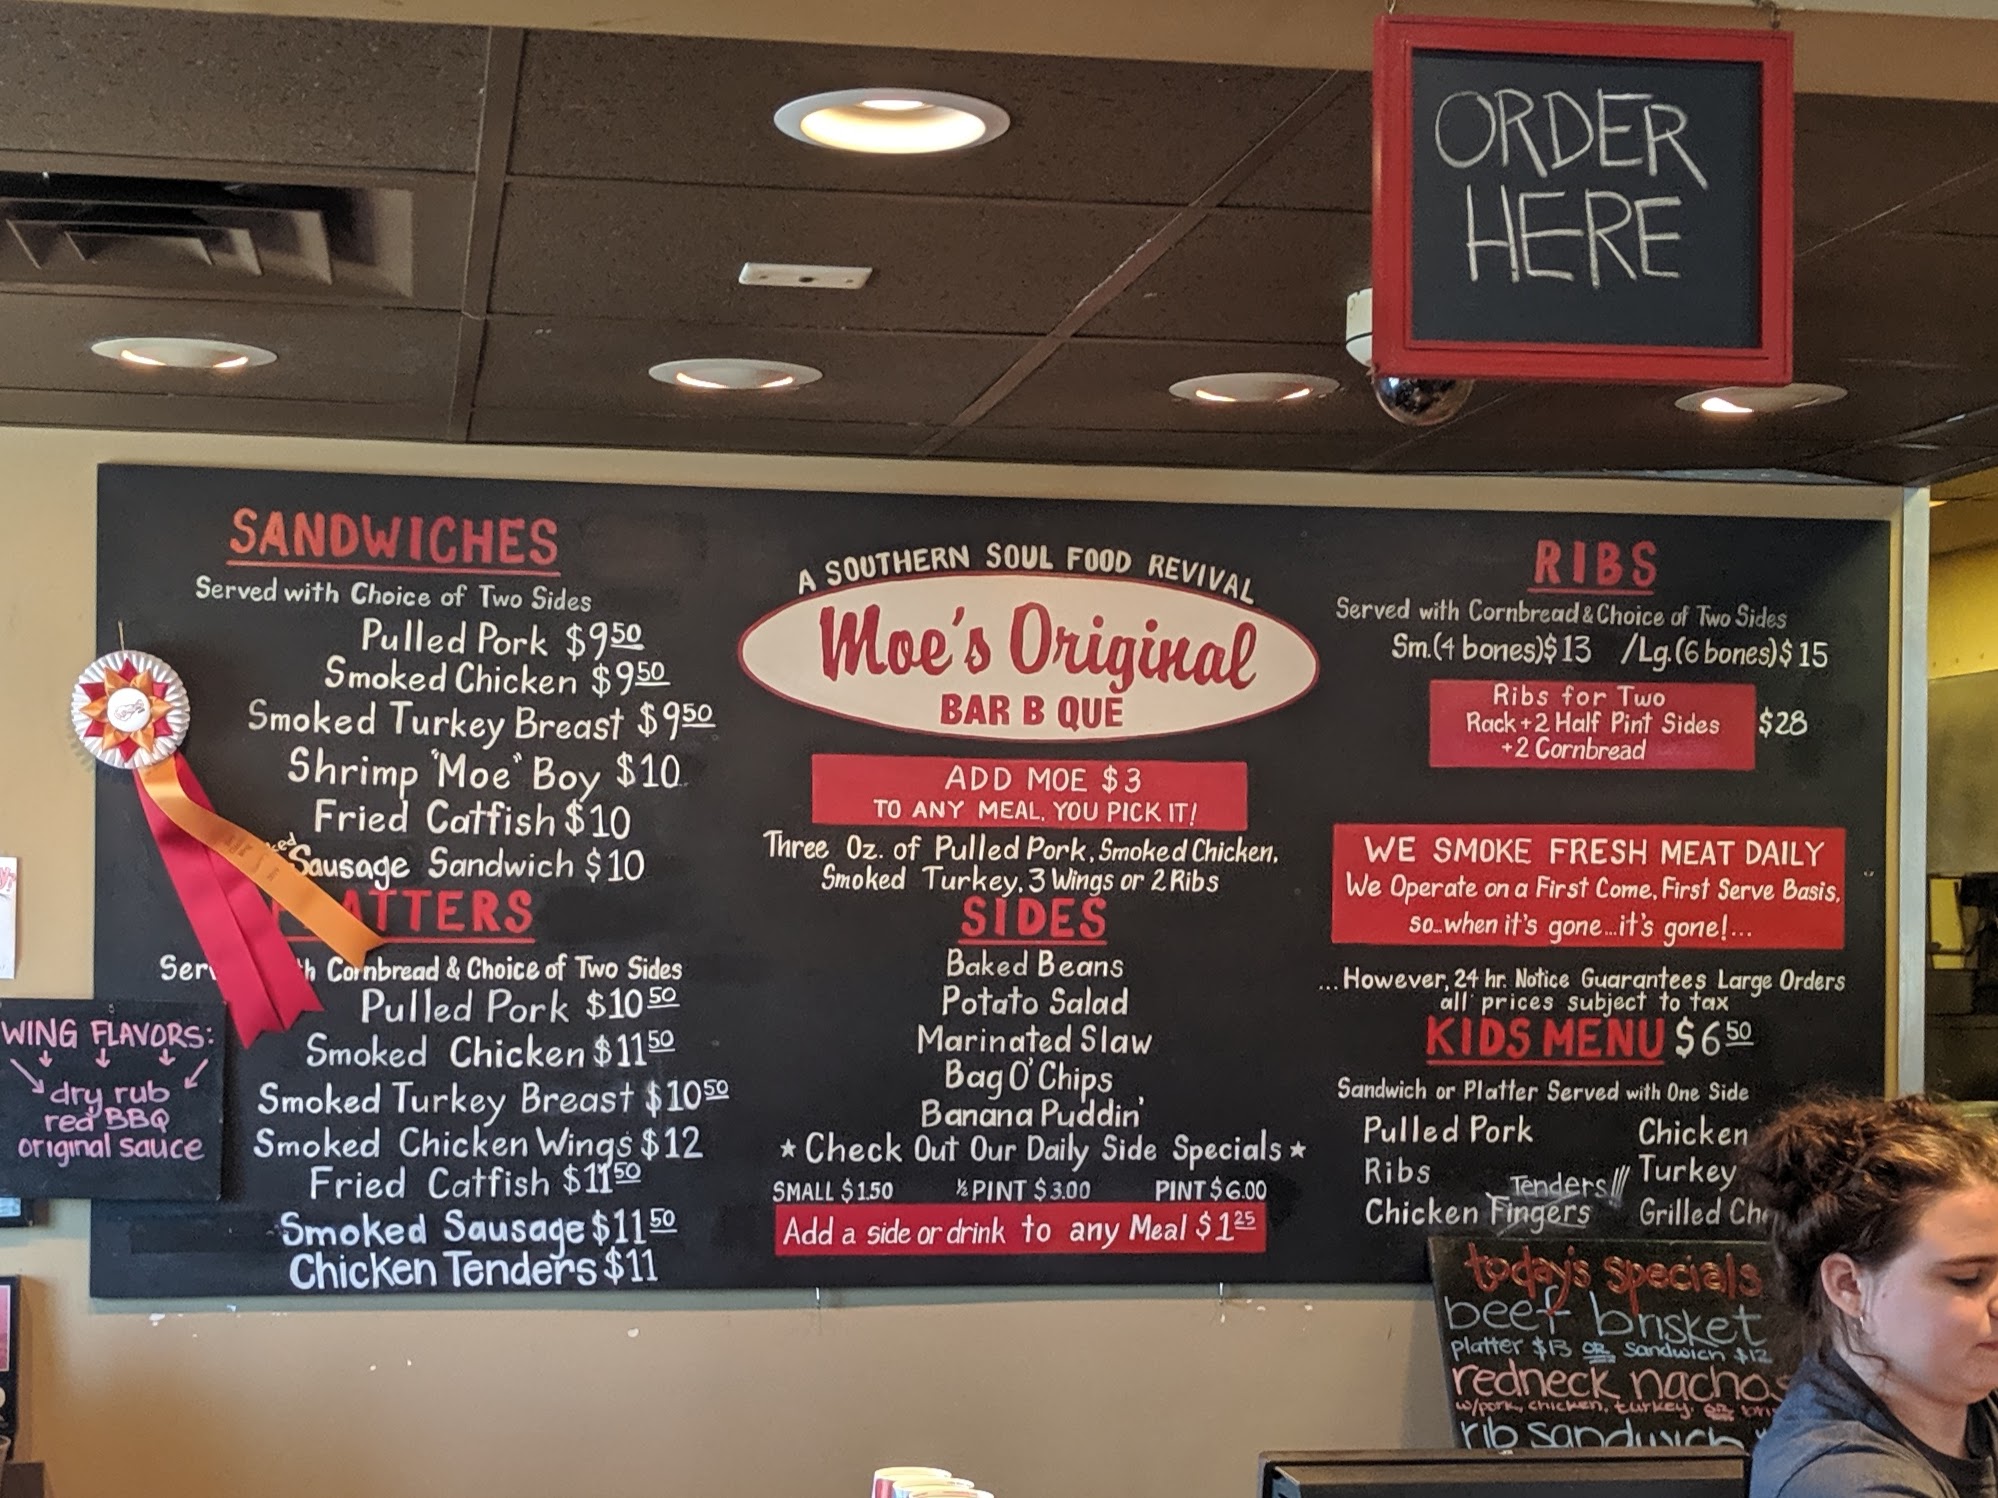 ORDER
HERE
SANDWICHES
Served with Choice of Two Sides
Pulled Pork $9 50
Smoked Chicken $9 50
Smoked Turkey Breast $9 50
Shrimp "Moe" Boy $10
Fried Catfish $10
Sausage Sandwich $10
Cornbread & Choice of Two Sides
Pulled Pork $10 50
Smoked Chicken $11 50
Smoked Turkey Breast $10 50
Smoked Chicken Wings $12
Fried Catfish $11 50
Smoked Sausage $11 50
Chicken Tenders $11
WING FLAVORS:
dry rub
red BBQ
original sauce
A SOUTHERN SOUL FOOD REVIVAL
Moe's Original
BAR B QUE
ADD MOE $3
TO ANY MEAL, YOU PICK IT!
Three Oz. of Pulled Pork, Smoked Chicken,
Smoked Turkey, 3 Wings or 2 Ribs
SIDES
Baked Beans
Potato Salad
Marinated Slaw
Bag O' Chips
Banana Puddin'
★ Check Out Our Daily Side Specials ★
SMALL $1.50 ½ PINT $3.00 PINT $6.00
Add a side or drink to any Meal $1 25
RIBS
Served with Cornbread & Choice of Two Sides
Sm. (4 bones) $13 / Lg. (6 bones) $15
Ribs for Two
Rack + 2 Half Pint Sides $28
+ 2 Cornbread
WE SMOKE FRESH MEAT DAILY
We Operate on a First Come, First Serve Basis,
so...when it's gone...it's gone!...
...However, 24 hr. Notice Guarantees Large Orders
all prices subject to tax
KIDS MENU $6 50
Sandwich or Platter Served with One Side
Pulled Pork Chicken
Ribs Turkey
Tenders!!!
Chicken Fingers Grilled
today's specials
beef brisket
platter $13 OR sandwich $12
redneck nachos
w/pork, chicken, turkey, or
rib sandwich